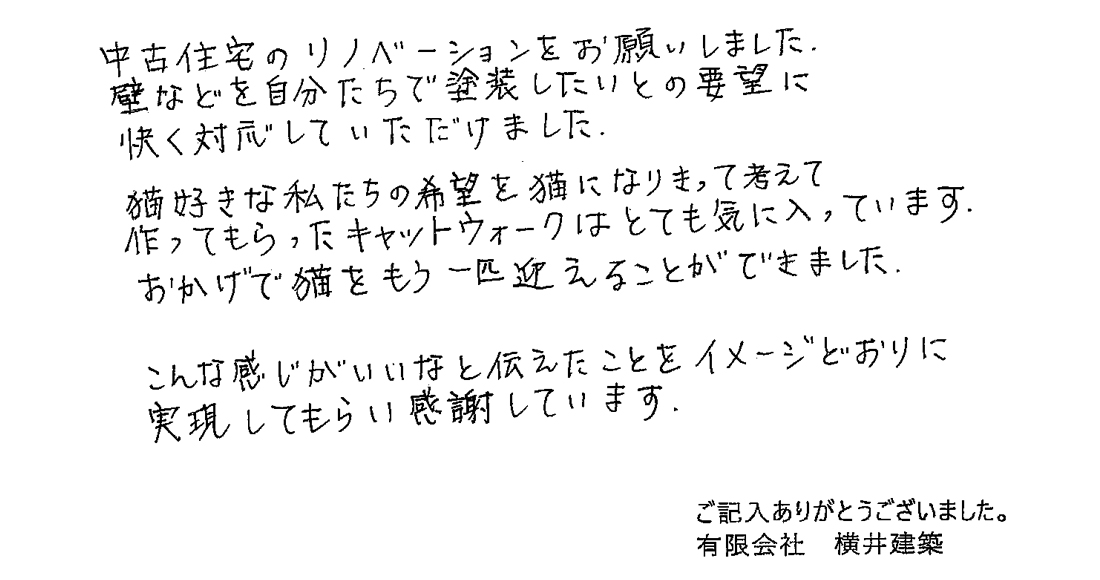 中古住宅のリノベーションをお願いしました.
壁などを自分たちで塗装したいとの要望に
快く対応していただけました.
猫好きな私たちの希望を猫になりきって考えて
作ってもらったキャットウォークはとても気に入っています.
おかげで猫をもう一匹迎えることができました.
こんな感じがいいなと伝えたことをイメージどおりに
実現してもらい感謝しています.
ご記入ありがとうございました。
有限会社 横井建築